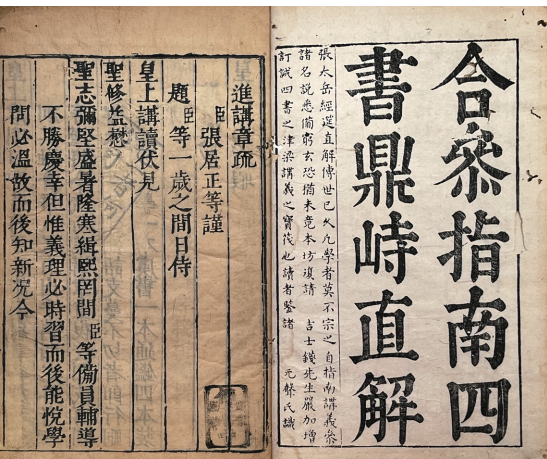 合參指南四
書鼎峙直解
張太岳經筵直解傳世已久凡學者莫不宗之自指南講義叅
諸名說悉備窮玄恐猶未竟本坊復請 吉士錢先生嚴加增
訂誠四書之津梁講義之寳筏也讀者鑒諸 元聲氏識
進講章疏
臣張居正等謹
題臣等一歲之間日侍
皇上講讀伏見
聖修益懋
聖志彌堅盛暑隆寒緝熙罔間臣等備員輔導
不勝慶幸但惟義理必時習而後能悅學
問必溫故而後知新況今